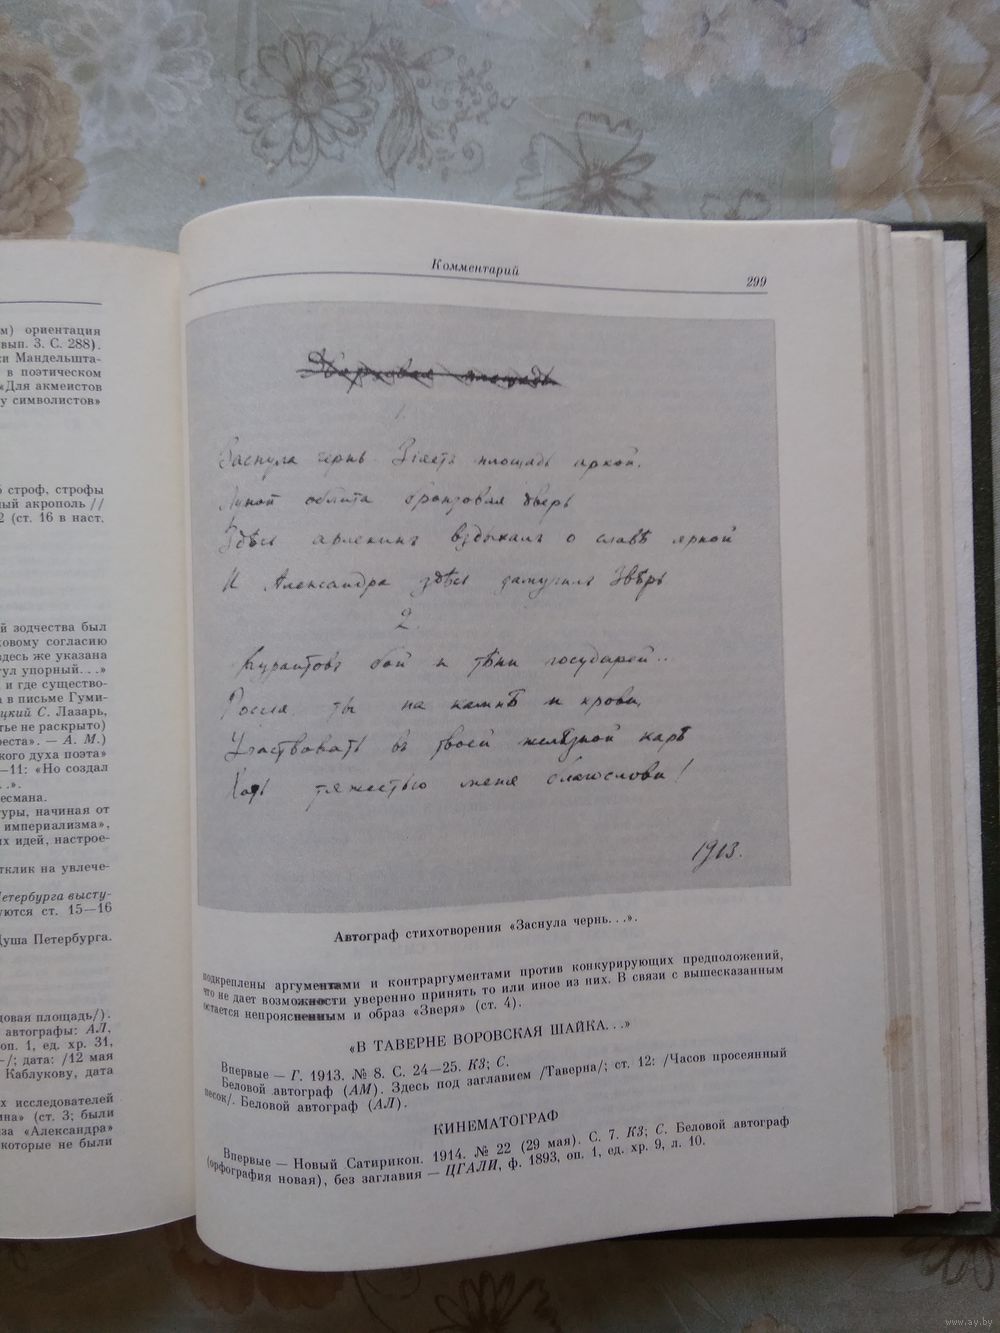 м) ориентация
вып. 3. С. 288).
и Мандельшта-
в поэтическом
«Для акмеистов
у символистов»
строф, строфы
ный акрополь //
2 (ст. 16 в наст.
й зодчества был
ковому согласию
здесь же указана
гул упорный. . .»
и где существо-
а в письме Гуми-
цкий С. Лазарь,
тье не раскрыто)
реста». — А. М.)
кого духа поэта»
—11: «Но создал
. .».
есмана.
уры, начиная от
империализма»,
их идей, настрое-
тклик на увлече-
Петербурга высту-
уются ст. 15—16
Душа Петербурга.
довая площадь/).
автографы: АЛ,
оп. 1, ед. хр. 31,
—/; дата: /12 мая
Каблукову, дата
х исследователей
ина» (ст. 3; были
за «Александра»
которые не были
Комментарий
299
Дворцовая площадь
1.
Заснула чернь. Зіяетъ площадь аркой.
Луной облита бронзовая дверь
Здѣсь арлекинъ вздыхалъ о славѣ яркой
И Александра здѣсь замучилъ Звѣрь
2.
Курантовъ бой и тѣни государей..
Россія, ты на камнѣ и крови,
Участвовать въ твоей желѣзной карѣ
Хоть тяжестью меня благослови!
1913.
Автограф стихотворения «Заснула чернь. . .».
подкреплены аргументами и контраргументами против конкурирующих предположений,
что не дает возможности уверенно принять то или иное из них. В связи с вышесказанным
остается непроясненным и образ «Зверя» (ст. 4).
«В ТАВЕРНЕ ВОРОВСКАЯ ШАЙКА. . .»
Впервые — Г. 1913. № 8. С. 24—25. КЗ; С.
Беловой автограф (АМ). Здесь под заглавием /Таверна/; ст. 12: /Часов просеянный
песок/. Беловой автограф (АЛ).
КИНЕМАТОГРАФ
Впервые — Новый Сатирикон. 1914. № 22 (29 мая). С. 7. КЗ; С. Беловой автограф
(орфография новая), без заглавия — ЦГАЛИ, ф. 1893, оп. 1, ед. хр. 9, л. 10.
www.ay.by